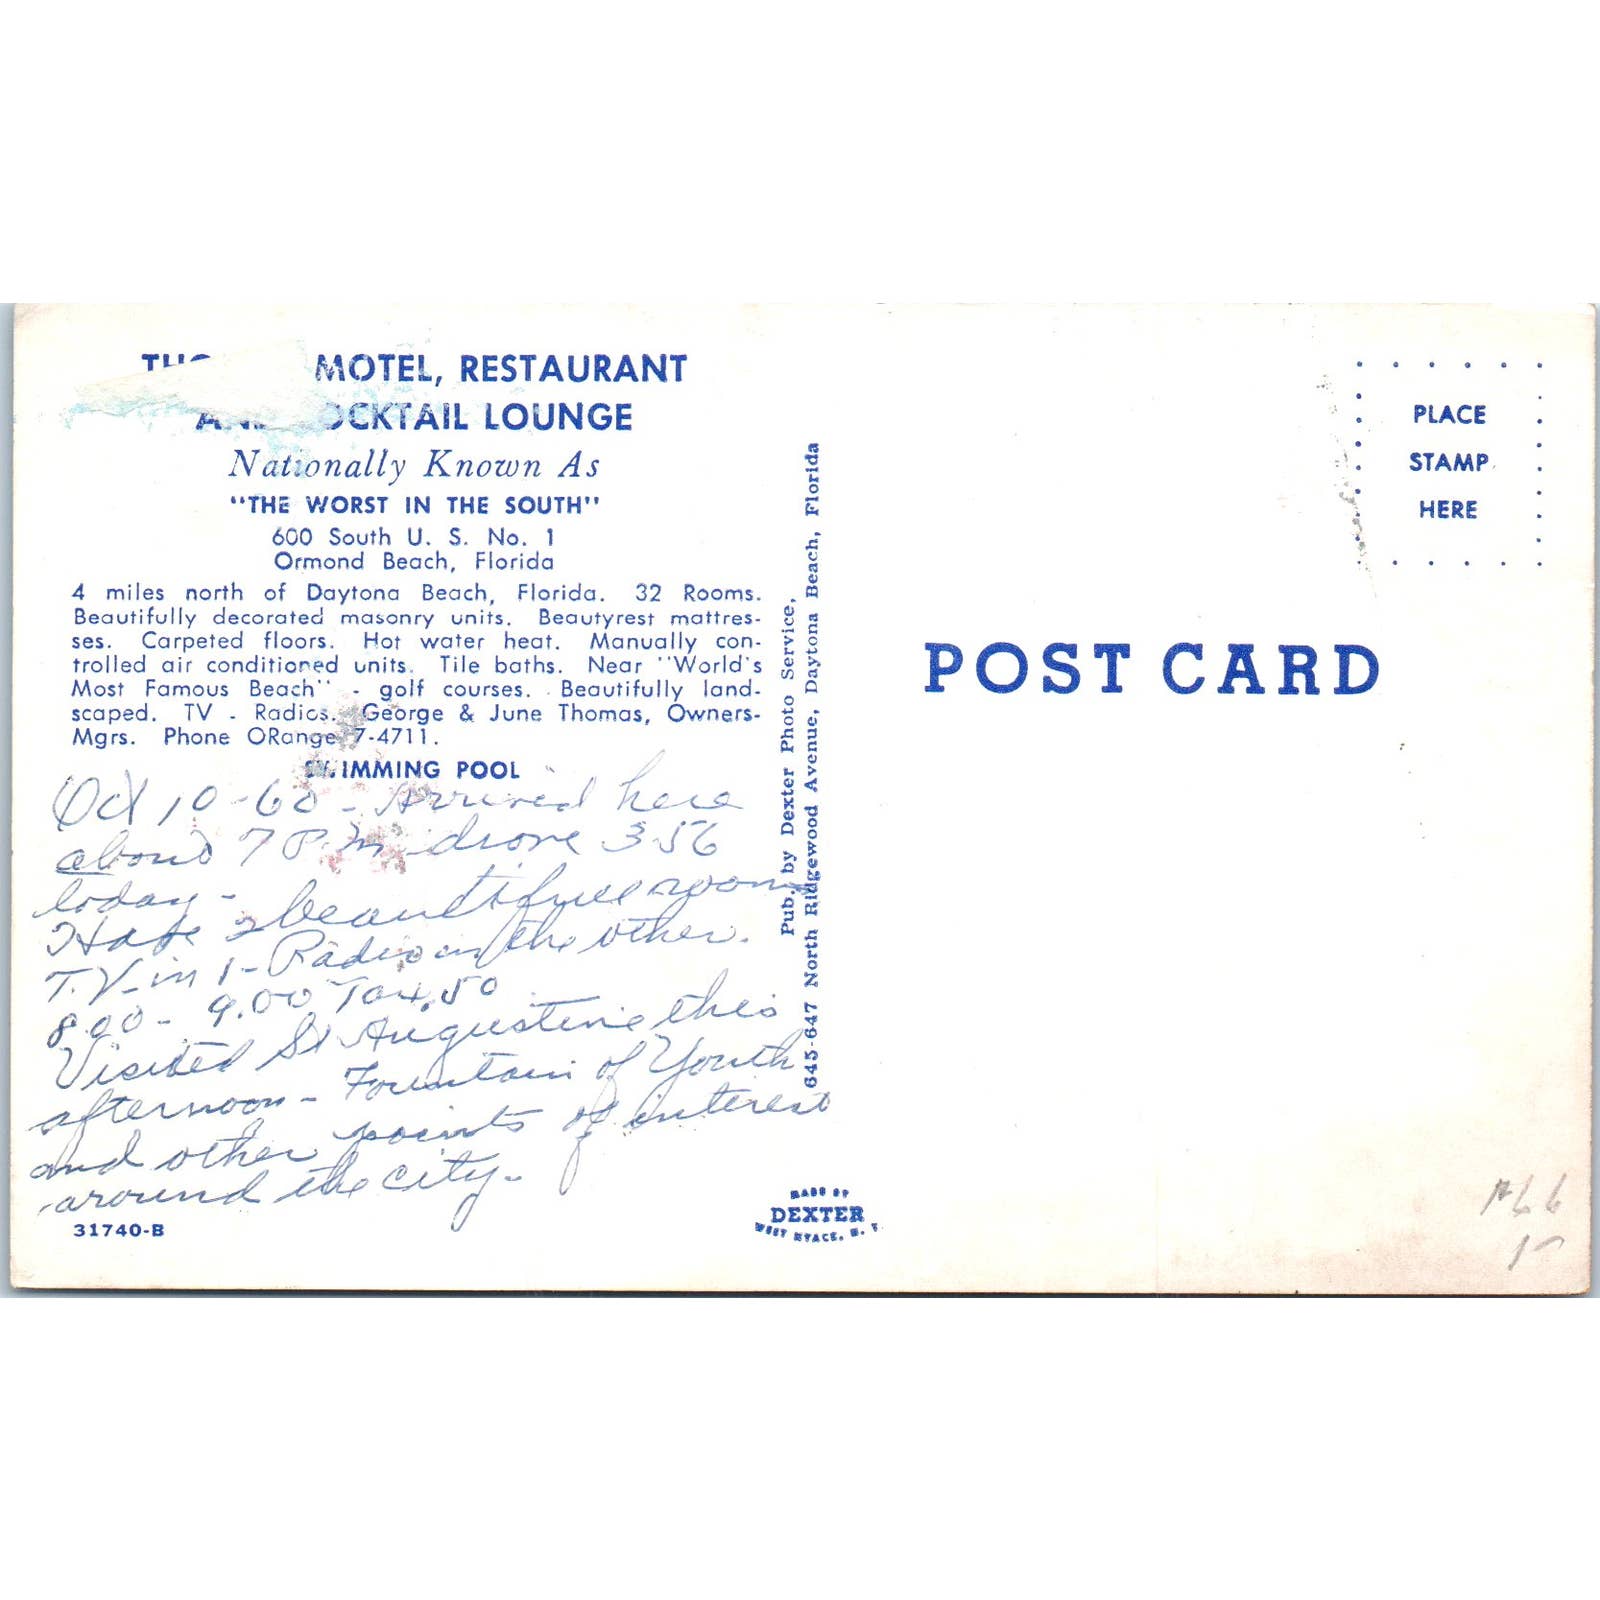 MOTEL, RESTAURANT
COCKTAIL LOUNGE
Nationally Known As
"THE WORST IN THE SOUTH"
600 South U. S. No. 1
Ormond Beach, Florida
4 miles north of Daytona Beach, Florida. 32 Rooms.
Beautifully decorated masonry units. Beautyrest mattres-
ses. Carpeted floors. Hot water heat. Manually con-
trolled air conditioned units. Tile baths. Near "World's
Most Famous Beach" - golf courses. Beautifully land-
scaped. TV - Radios. George & June Thomas, Owners-
Mgrs. Phone ORange 7-4711.
SWIMMING POOL
Oct 10-60 - Arrived here
about 7 P.M. drove 356
today -
Have 2 beautiful rooms
T.V. in 1 - Radio in the other.
8.00 - 9.00 Tax .50
Visited St Augustine this
afternoon - Fountain of Youth
and other points of interest
around the city -
31740-B
Pub. by Dexter Photo Service,
645-647 North Ridgewood Avenue, Daytona Beach, Florida
MADE BY
DEXTER
WEST NYACK, N. Y.
PLACE
STAMP
HERE
POST CARD